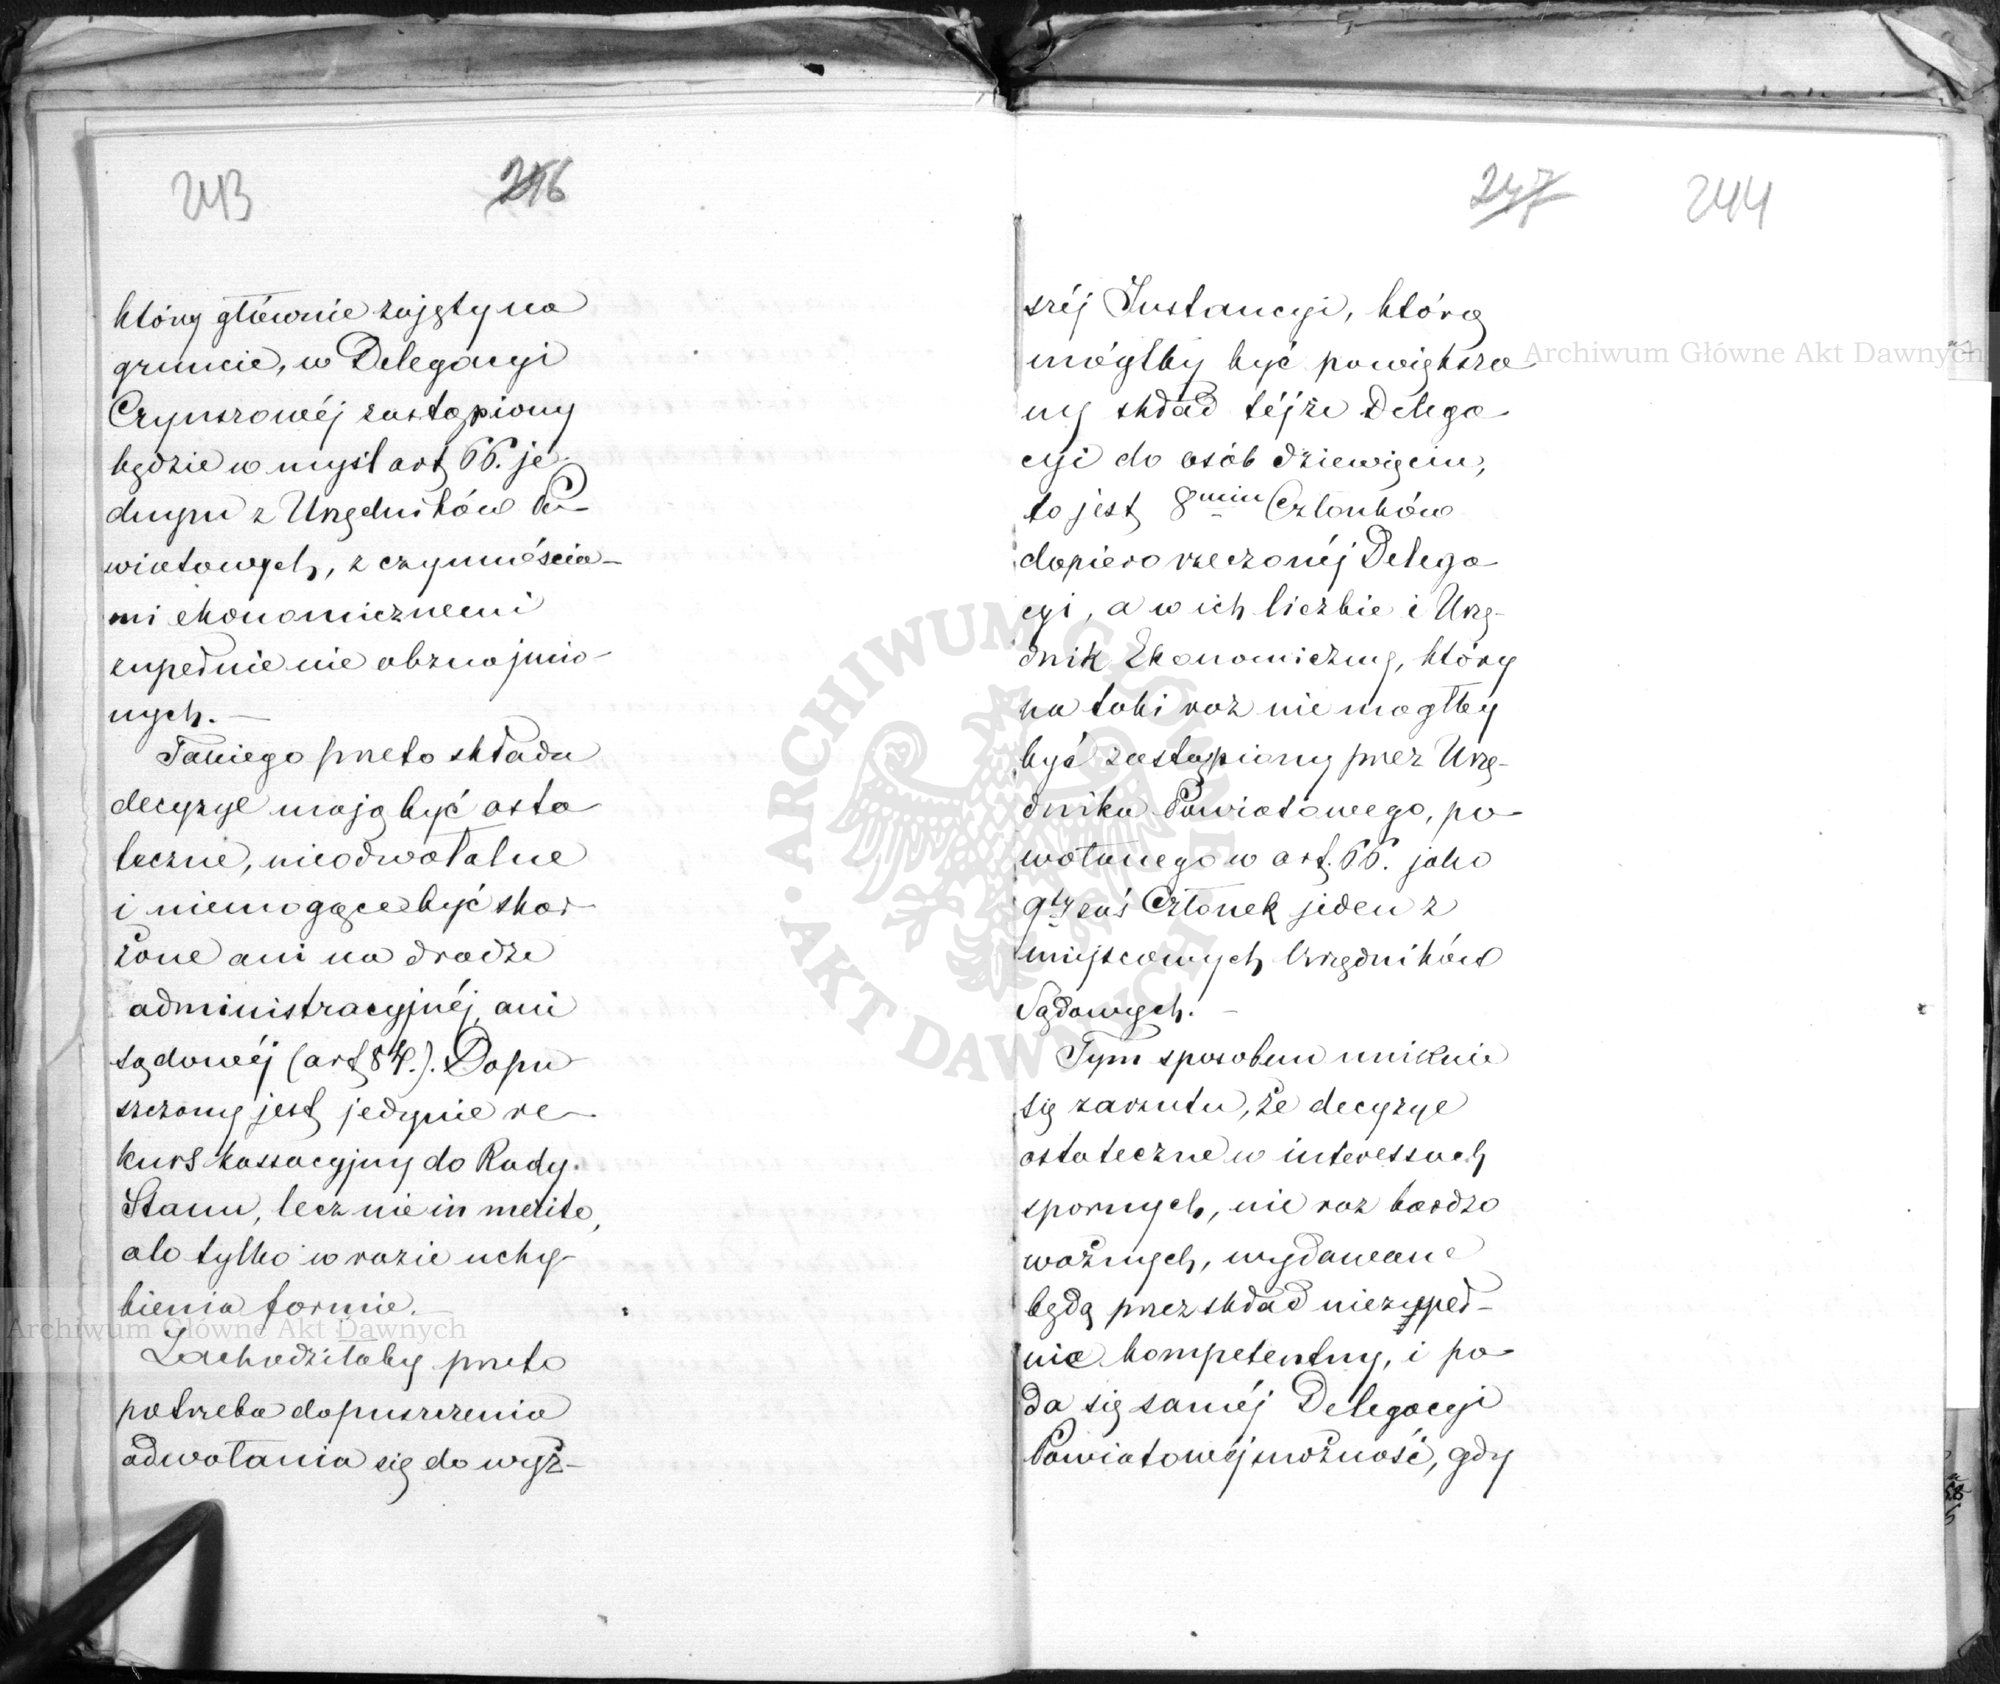 243
246
który głównie zajęty na
gruncie, w Delegacyi
Czynszowéj zastąpiony
będzie w myśl art 66. je-
dnym z Urzędników Po-
wiatowych, z czynnościa-
mi ekonomicznemi
zupełnie nie obznajmio-
nych. —
Takiego przeto składu
decyzye mają być osta-
teczne, nieodwołalne
i niemogące być skar-
żone ani na drodze
administracyjnéj, ani
sądowéj (art 84.). Dopu-
szczony jest jedynie re-
kurs kassacyjny do Rady
Stanu, lecz nie in merito,
ale tylko w razie uchy-
bienia formie. —
Zachodziłaby przeto
potrzeba dopuszczenia
odwołania się do wyż-
247
244
széj Instancyi, którą
mógłby być powiększo-
ny skład téjże Delega-
cyi do osób dziewięciu,
to jest 8miu Członków
dopiero rzeczonéj Delega-
cyi, a w ich liczbie i Urzę-
dnik Ekonomiczny, który
na taki raz nie mógłby
być zastąpiony przez Urzę-
dnika Powiatowego, po-
wołanego w art. 66. jako
9ty zaś Członek jeden z
miejscowych Urzędników
Sądowych. —
Tym sposobem uniknie
się zarzutu, że decyzye
ostateczne w interessach
spornych, nie raz bardzo
ważnych, wydawane
będą przez skład niezupeł-
nie kompetentny, i po-
da się saméj Delegacyi
Powiatowéj możność, gdy
Archiwum Główne Akt Dawnych
Archiwum Główne Akt Dawnych
ARCHIWUM GŁÓWNE AKT DAWNYCH